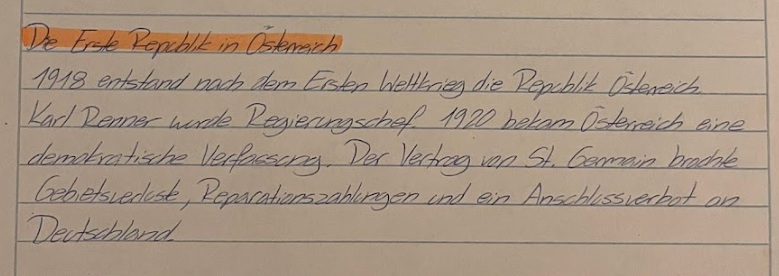 Die Erste Republik in Österreich
1918 entstand nach dem Ersten Weltkrieg die Republik Österreich.
Karl Renner wurde Regierungschef. 1920 bekam Österreich eine
demokratische Verfassung. Der Vertrag von St. Germain brachte
Gebietsverluste, Reparationszahlungen und ein Anschlussverbot an
Deutschland.